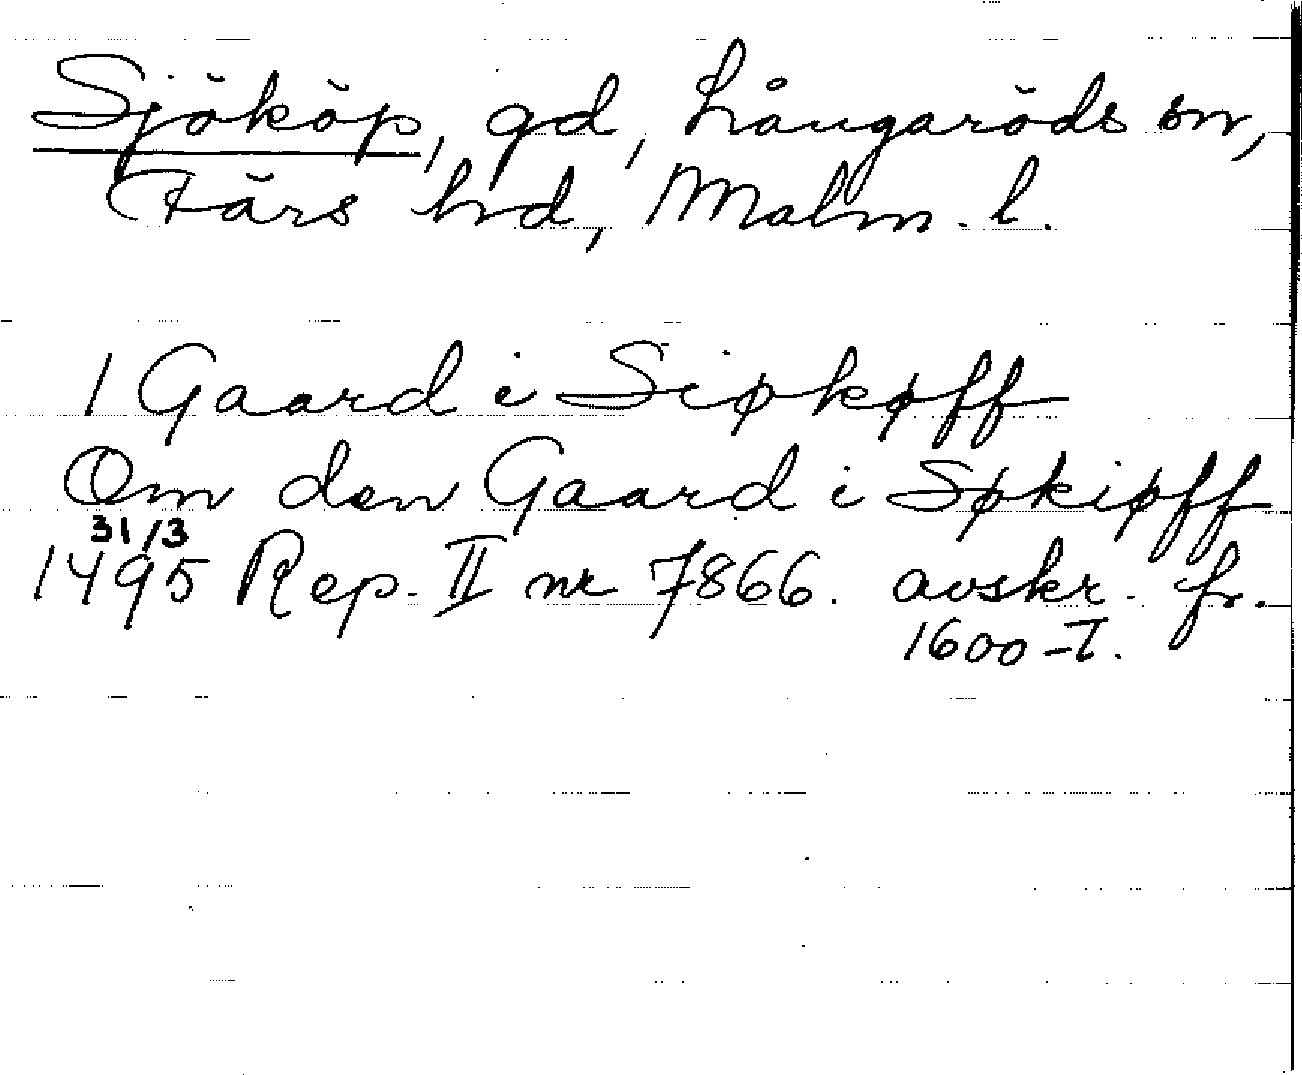 Sjököp, gd, Långaröds sn,
Färs hd, Malm. l.
1 Gaard i Siøkøff
Om den Gaard i Søkiøff
31/3
1495 Rep. II nr 7866. avskr. fr.
1600-T.